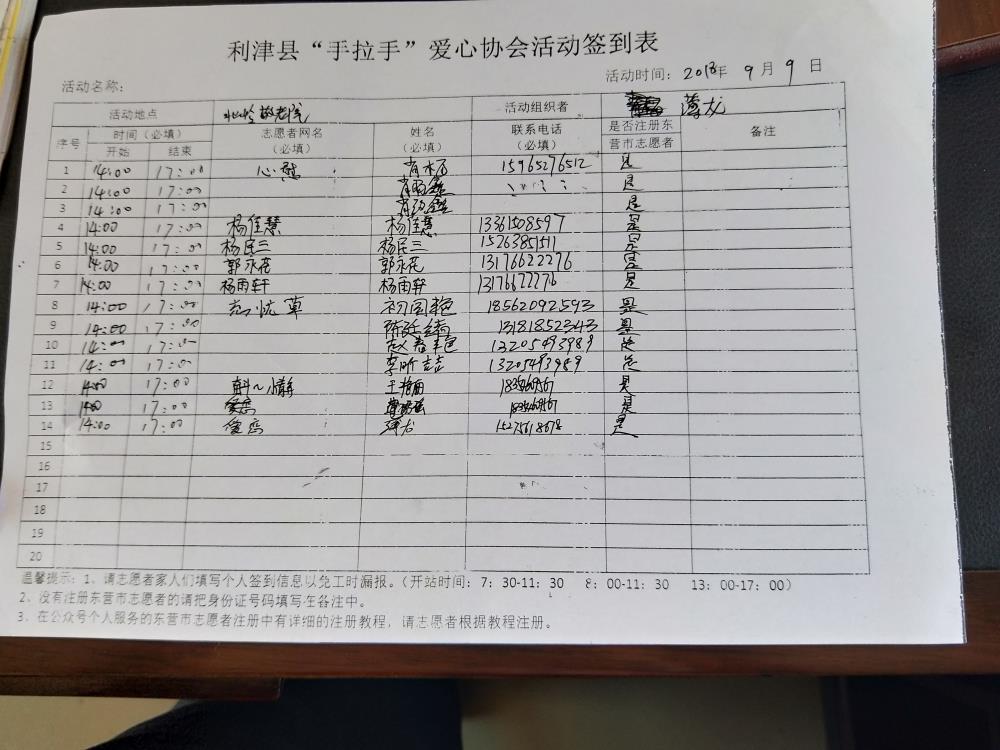 利津县“手拉手”爱心协会活动签到表
活动名称： 活动时间：2018年 9月 9日
活动地点 敬老院 活动组织者 薄龙
序号 时间（必填） 志愿者网名（必填） 姓名（必填） 联系电话（必填） 是否注册东营市志愿者 备注
开始 结束
1 14:00 17:00 心慰 15965276512 是
2 14:00 17:00 是
3 14:00 17:00 是
4 14:00 17:00 杨佳慧 杨佳慧 13361508597 是
5 14:00 17:00 杨民三 杨民三 15263851511 是
6 14:00 17:00 郭永花 郭永花 13176622276 是
7 14:00 17:00 杨雨轩 杨雨轩 13176622276 是
8 14:00 17:00 初国艳 18562092593 是
9 14:00 17:00 13181852343 是
10 14:00 17:00 赵春艳 13205493989 是
11 14:00 17:00 李昕喆 13205493989 是
12 14:00 17:00 是
13 14:00 17:00 是
14 14:00 17:00 薄龙 15275618678 是
15
16
17
18
19
20
温馨提示：1、请志愿者家人们填写个人签到信息以免工时漏报。（开站时间：7：30-11：30 8：00-11：30 13：00-17：00）
2、没有注册东营市志愿者的请把身份证号码填写在备注中。
3、在公众号个人服务的东营市志愿者注册中有详细的注册教程，请志愿者根据教程注册。